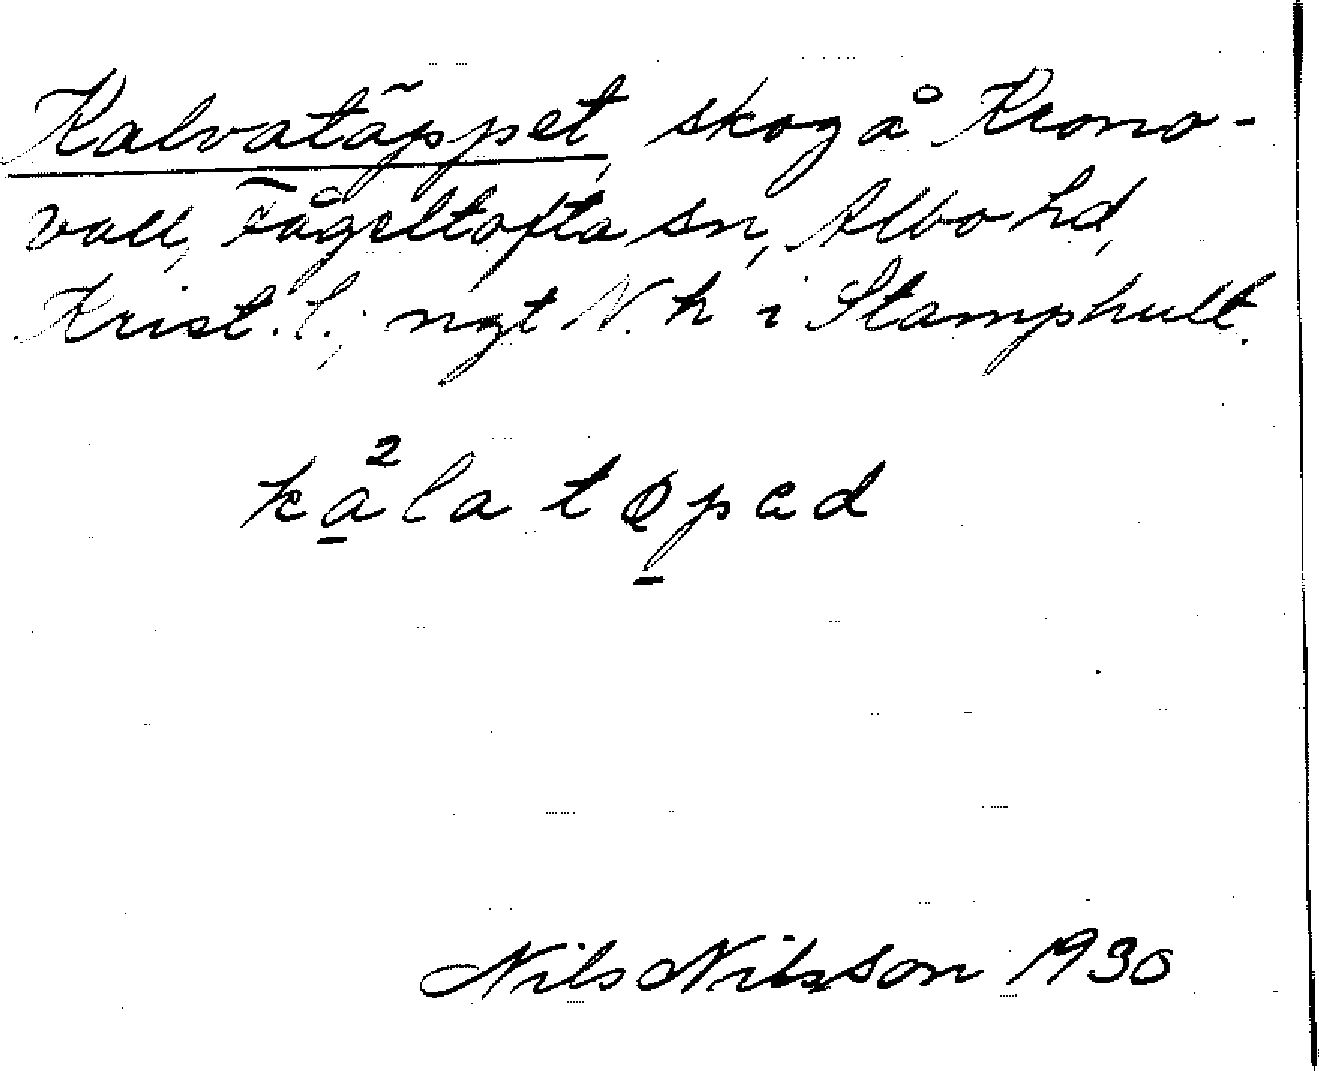 Kalvatäppet, skog å Krono-
vall, Fågeltofta sn, Albo hd,
Krist. l.; ngt N. h i Stamphult.
kå²la tøpad
Nils Nilsson 1930